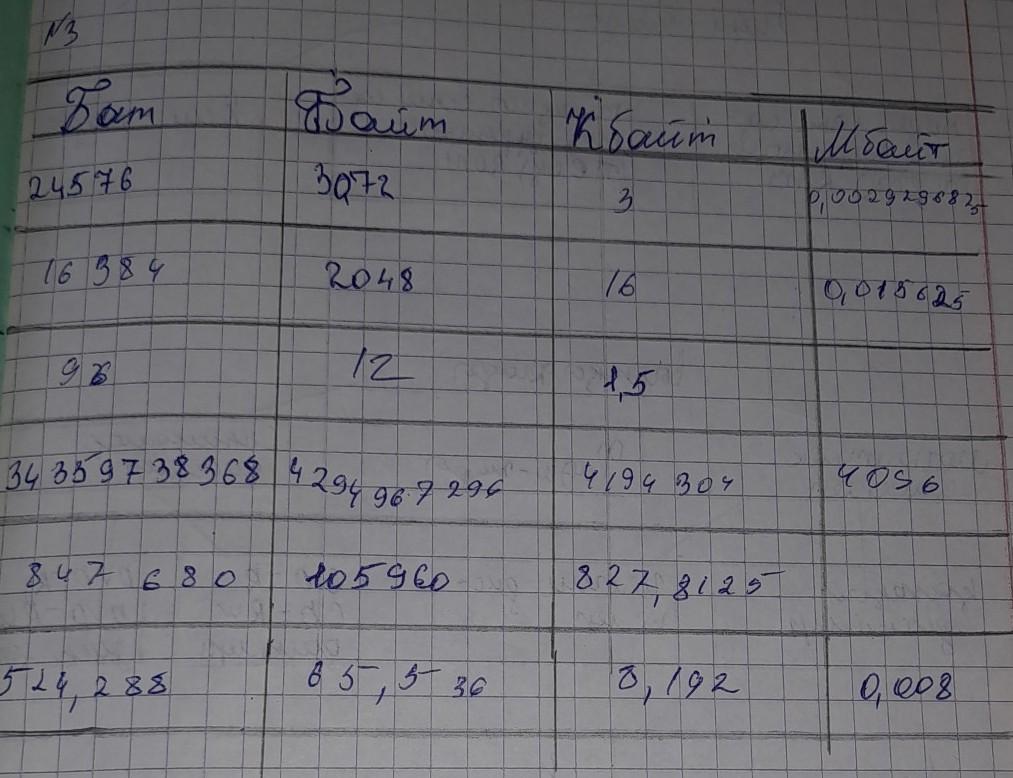 N3
Бит Байт Кбайт Мбайт
24576 3072 3 0,0029296825
16 384 2048 16 0,015625
96 12 1,5
34359738368 4294967296 4194304 4096
847 680 105960 827,8125
524,288 65,536 8,192 0,008